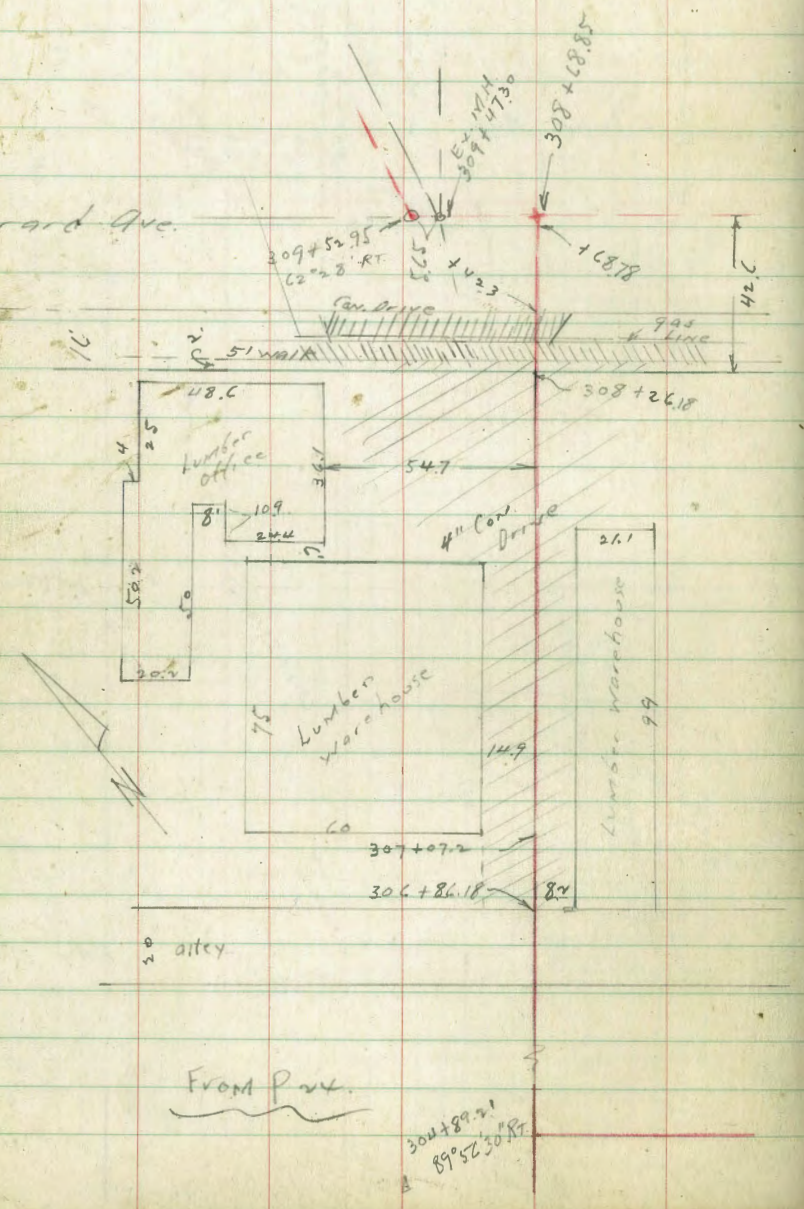 308+68.85
Ex. M.H.
309+47.30
rard Ave.
309+52.95
62°28' RT.
5.65
+42.3
+68.78
42.6
Con. Drive
gas
Line
16'
2'
5' walk
308+26.18
48.6
4
25
Lumber
Office
36.1
54.7
8'
10.9
24.4
7
4" Con.
Drive
21.1
50.2
50
20.2
Lumber
Warehouse
75
14.9
Lumber Warehouse
99
N
60
307+07.2
306+86.18
8.2
20
alley
From P 24.
304+89.21
89°56'30" RT.